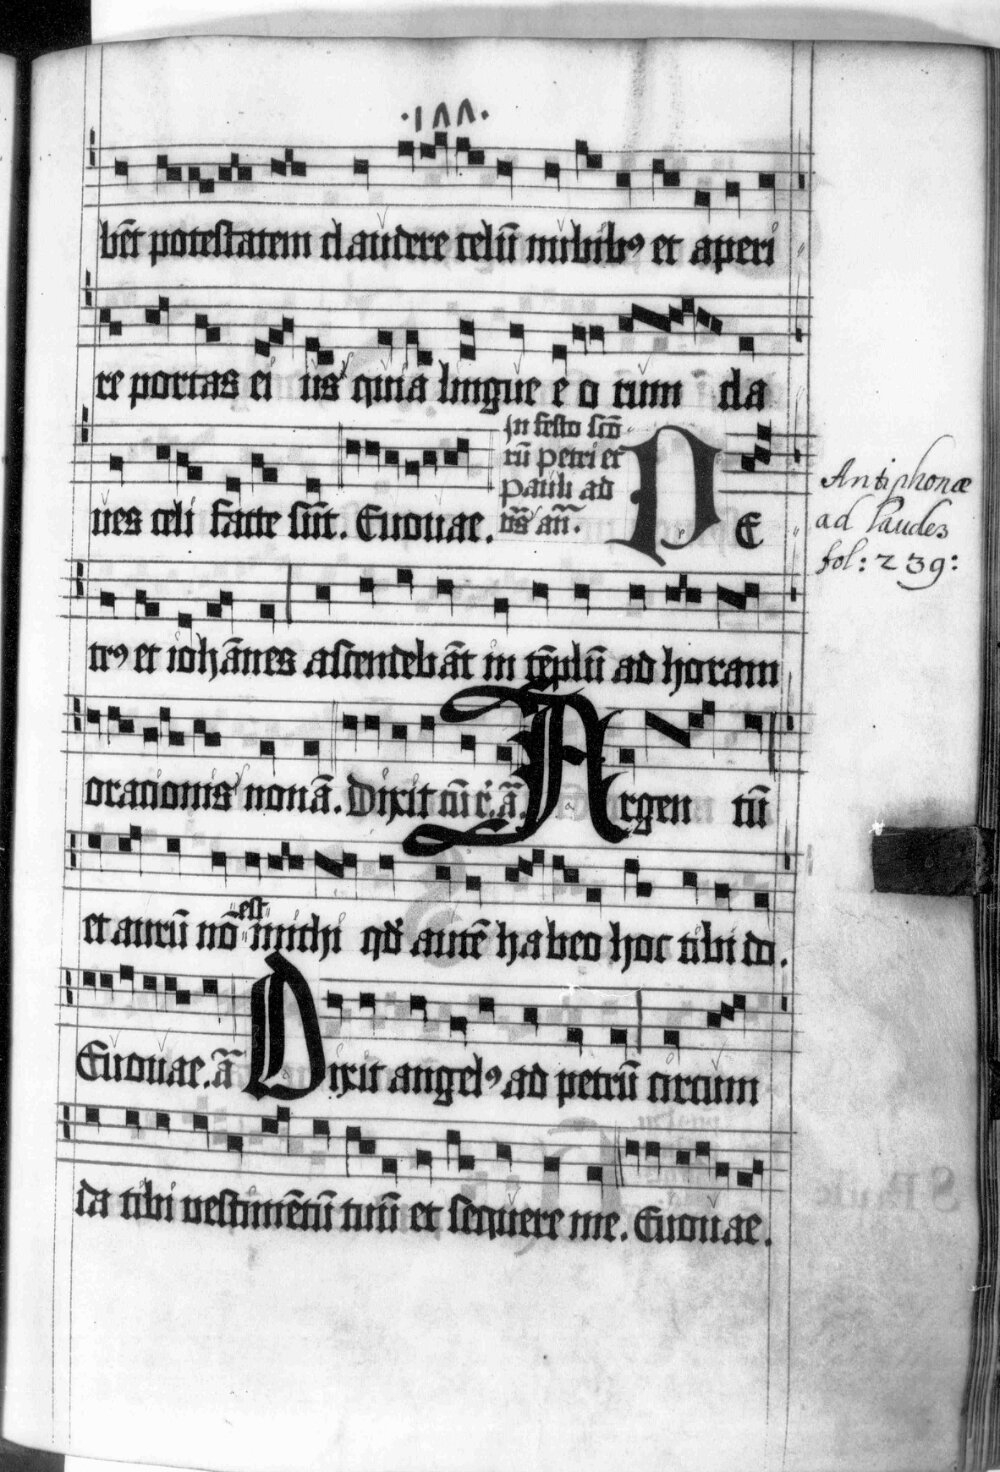 ·1ΛΛ·
bēt potestatem claudere celū nubibꝰ et aperi
re portas ei iis quia lingue e o rum cla
ues celi facte sūt. Euouae.
In festo scō
rū petri et
pauli ad
v̄s an̄.
PE
Antiphonæ
ad Laudes
fol: 239:
trꝰ et iohānes ascendebāt in tēplū ad horam
oracionis nonā. Dixit cū r̄. ā. Argen tū
et aurū nō est michi qd̄ autē habeo hoc tibi do.
Euouae. ā Dixit angelꝰ ad petrū circum
da tibi vestimētū tuū et sequere me. Euouae.